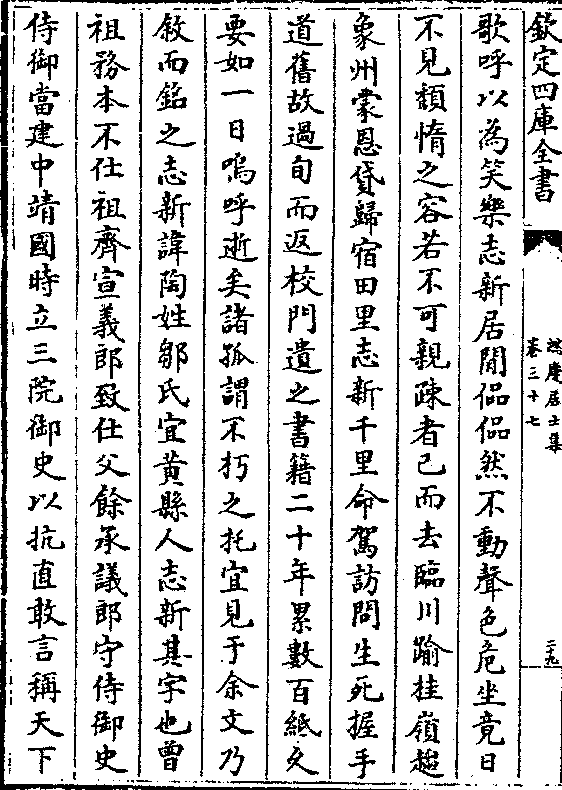 欽定四庫全書
鴻慶居士集
卷三十七
二十九
歌呼以為笑樂志新居閒偘偘然不動聲色危坐竟日
不見頽惰之容若不可親疎者已而去臨川踰桂嶺趍
象州蒙恩貸歸宿田里志新千里命駕訪問生死握手
道舊故過旬而返校門遺之書籍二十年累數百紙久
要如一日嗚呼逝矣諸孤謂不朽之托宜見于余文乃
敘而銘之志新諱陶姓鄒氏宜黃縣人志新其字也曾
祖務本不仕祖齊宣義郎致仕父餘承議郎守侍御史
侍御當建中靖國時立三院御史以抗直敢言稱天下